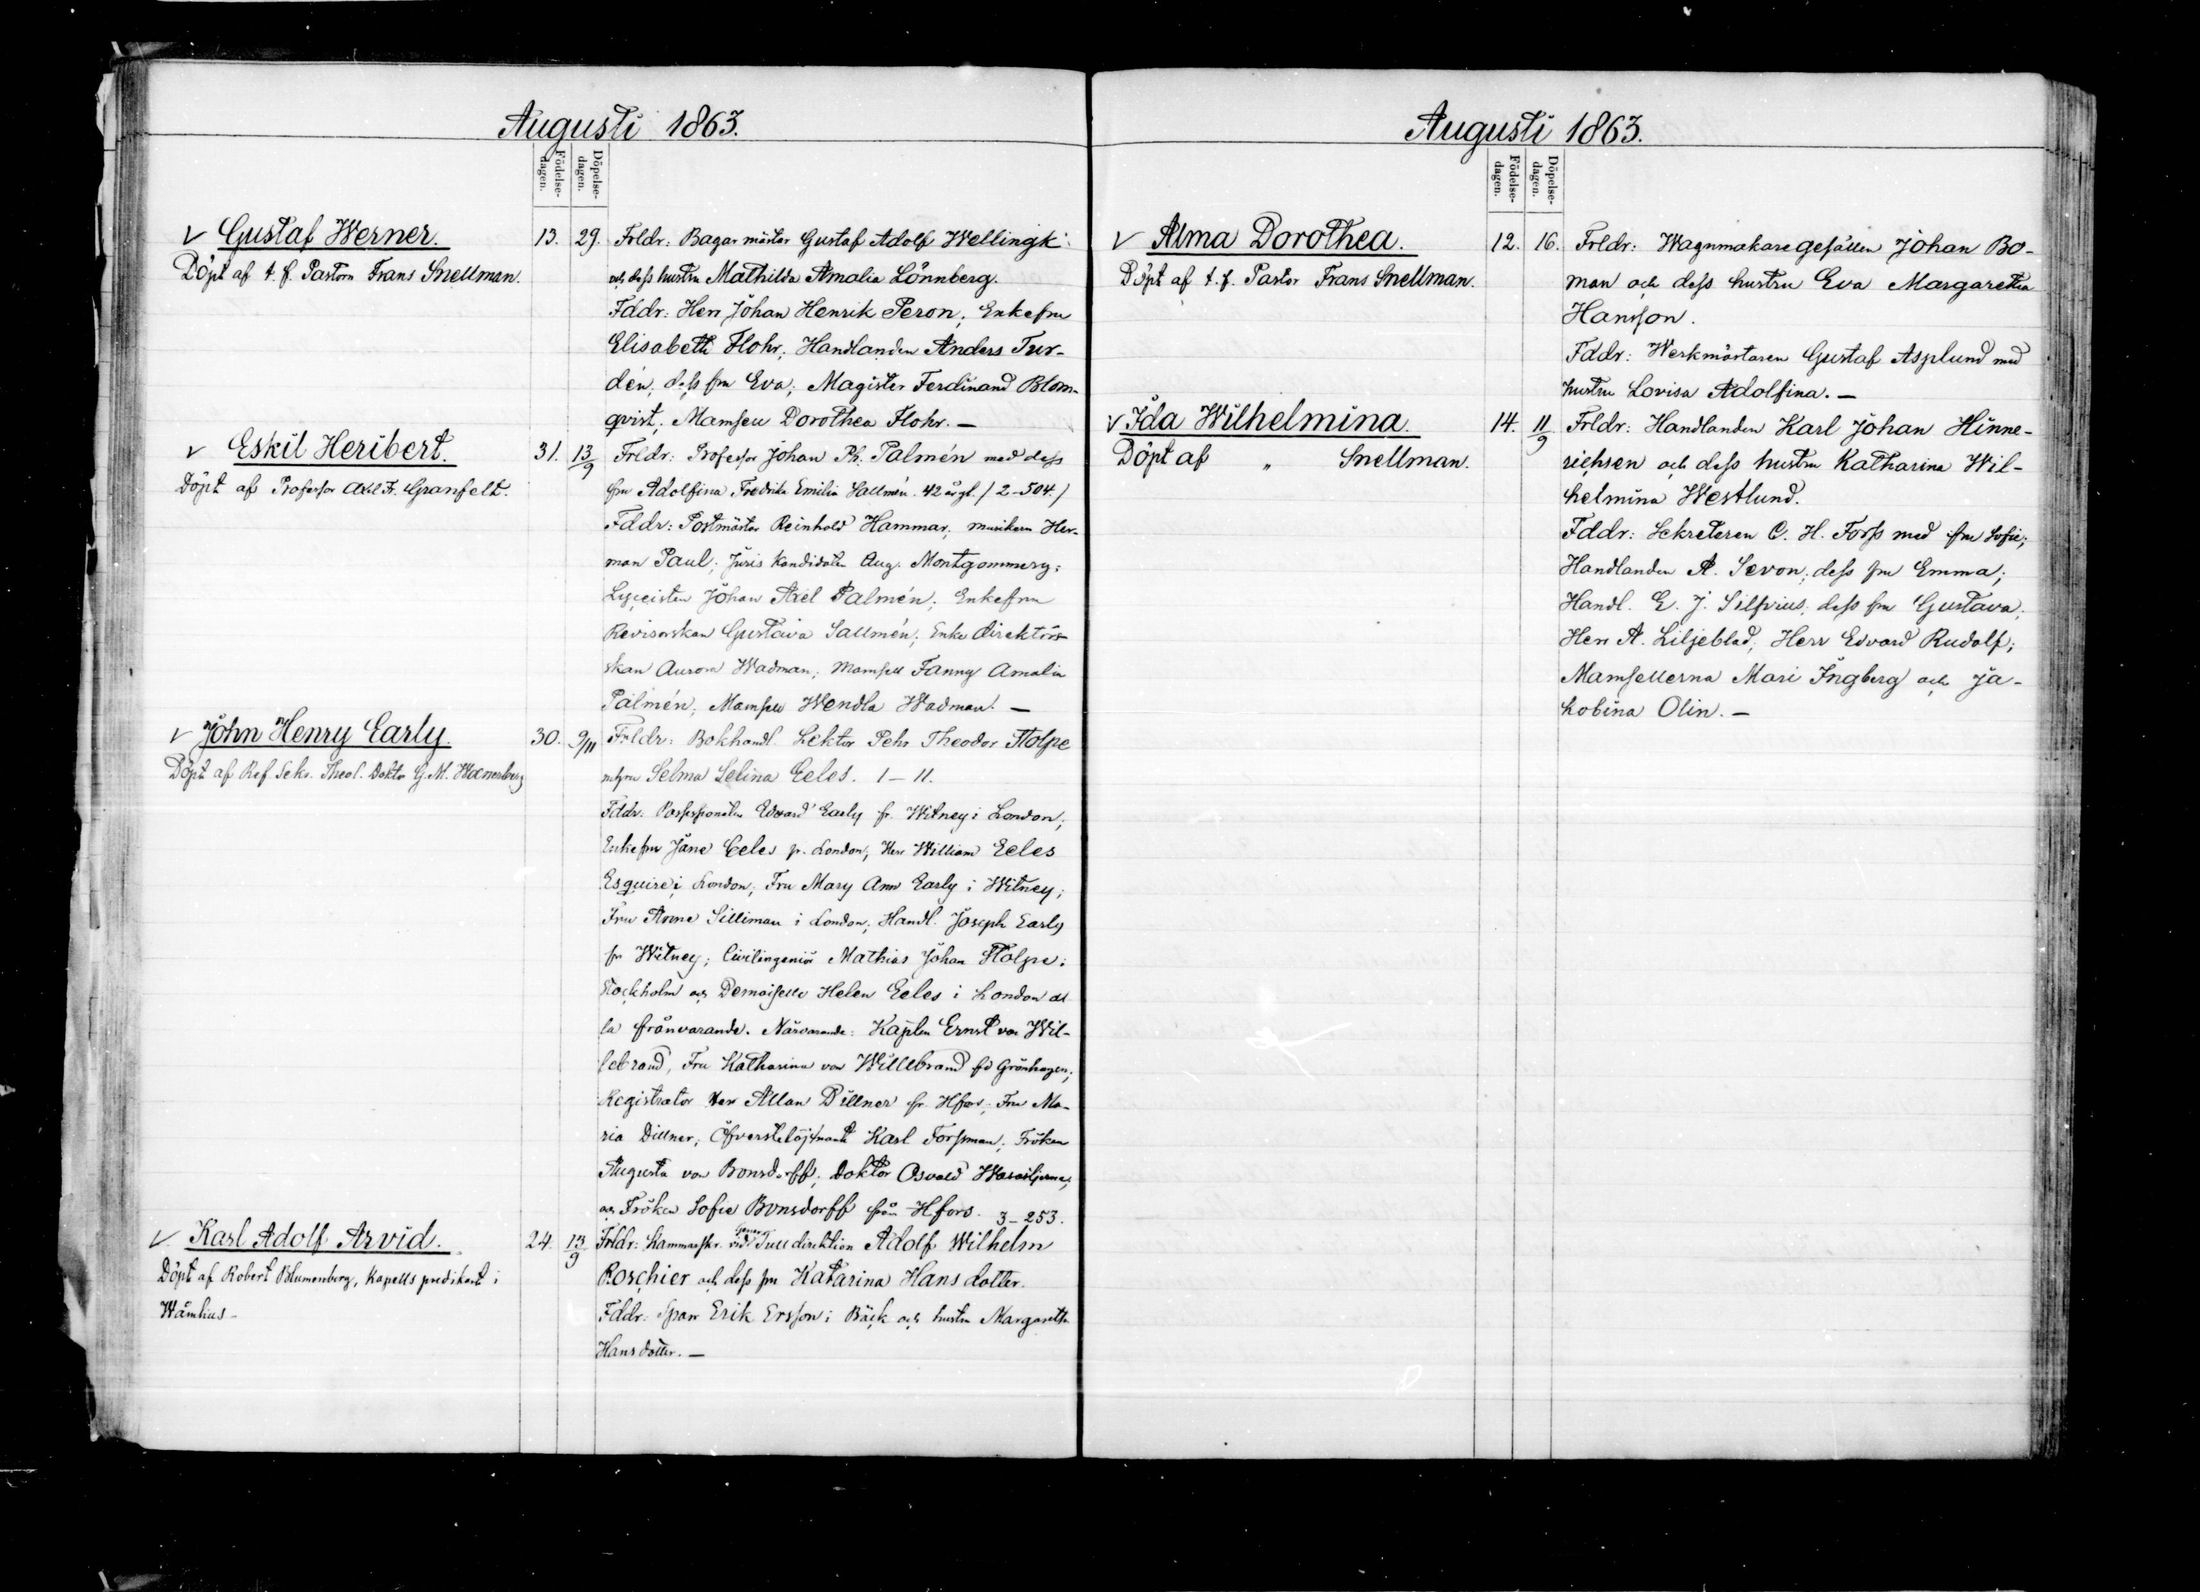 Augusti 1863.
Födelse-
dagen.
Döpelse-
dagen.
√ Gustaf Werner.
Döpt af t. f. Pastorn Frans Snellman.
13. 29. Frldr: Bagar mästar Gustaf Adolf Wellingk
och dess hustru Mathilda Amalia Lönnberg.
Fddr: Herr Johan Henrik Peron; Enkefru
Elisabeth Flohr; Handlanden Anders Tur-
dén; dess fru Eva; Magister Ferdinand Blom-
qvist; Mamsell Dorothea Flohr. —
√ Eskil Heribert.
Döpt af Professor Axel Fr. Granfelt.
31. 13/9 Frldr: Professor Johan Ph. Palmén med dess
fru Adolfina Fredrika Emilia Sallmén. 42 år gl. / 2-504. /
Fddr: Postmästar Reinhold Hammar; musikern Her-
man Paul; Juris Kandidaten Aug. Montgommery;
Lyceisten Johan Axel Palmén; Enkefru
Revisorskan Gustava Sallmén; Enke direktörs-
skan Aurora Wadman; Mamsell Fanny Amalia
Palmén; Mamsell Wendla Wadman. —
√ John Henry Early.
Döpt af Ref. Sekr. Theol. Doktor G. M. Waenerberg
30. 9/11 Frldr: Bokhandl. Lektor Pehr Theodor Stolpe
m fru Selma Selina Eeles. 1-11.
Fddr: Possessionaten Edvard Early fr. Witney i London;
Enkefru Jane Eeles fr. London; Herr William Eeles
Esquire i London; Fru Mary Ann Early i Witney;
Fru Anne Silliman i London; Handl. Joseph Early
fr Witney; Civilingeniör Mathias Johan Stolpe i
Stockholm och Demoiselle Helen Eeles i London al
la frånvarande. Närvarande: Kapten Ernst von Wil-
lebrand, Fru Katharina von Willebrand fd Grönhagen;
Registrator Herr Allan Dillner fr. Hfors; Fru Ma-
ria Dillner; Öfverstelöjtnant Karl Forssman; Fröken
Augusta von Bonsdorff; Doktor Osvald Wasastjerna;
och Fröken Sofie Bonsdorff från Hfors. 3-253.
√ Karl Adolf Arvid.
Döpt af Robert Blumenberg, Kapells predikant i
Wåmhus-
24. 13/9 Frldr: Kammarskr. vid Gener. Tull direktion Adolf Wilhelm
Roschier och dess fru Katarina Hans dotter.
Fddr: Span Erik Ersson i Bäck och hustru Margaretha
Hans dotter. —
Augusti 1863.
Födelse-
dagen.
Döpelse-
dagen.
√ Alma Dorothea.
Döpt af t. f. Pastor Frans Snellman.
12. 16. Frldr: Wagnmakare gesällen Johan Bo-
man och dess hustru Eva Margaretha
Hansson.
Fddr: Werkmästaren Gustaf Asplund med
hustru Lovisa Adolfina. —
√ Ida Wilhelmina.
Döpt af " Snellman.
14. 11/9 Frldr: Handlanden Karl Johan Hinne-
richsen och dess hustru Katharina Wil-
helmina Westlund.
Fddr: Sekreteren C. H. Forss med fru Sofie;
Handlanden A. Sevon; dess fru Emma;
Handl. E. J. Silfvius; dess fru Gustava;
Herr A. Liljeblad; Herr Edvard Rudolf;
Mamsellerna Mari Ingberg och Ja-
kobina Olin. —